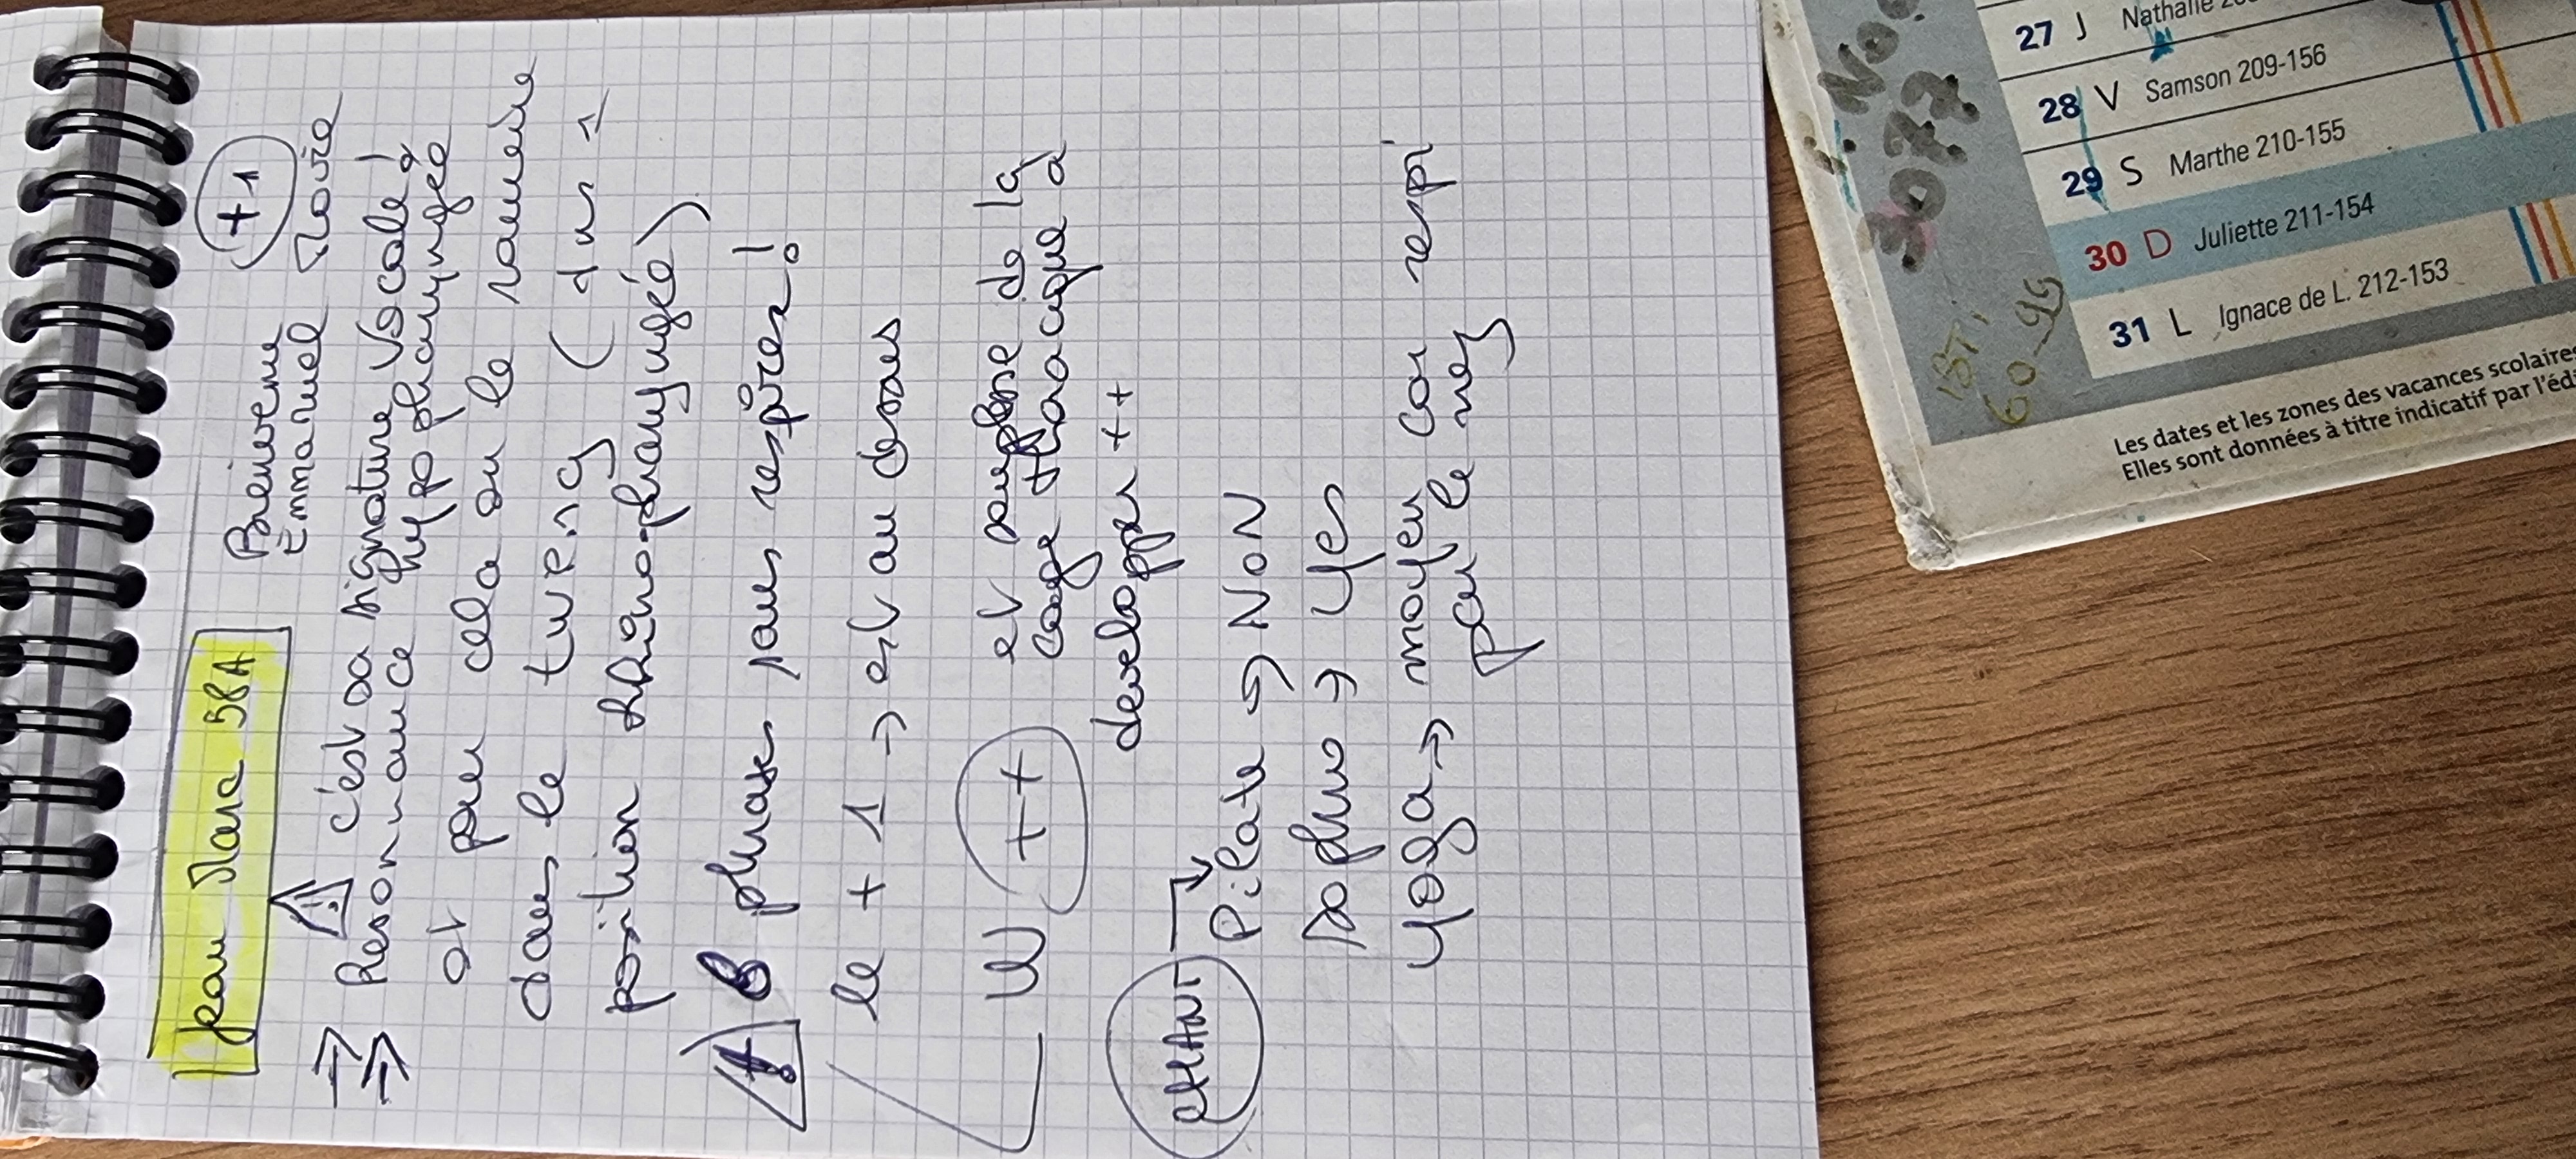 Jean Marc 58A
Bienvenu +1
Emmanuel Moire
⚠ c'est sa signature vocale !
⇒ Resonnance hypopharyngée
et pour cela on le ramène
dans le twang (dur =
position rhino-pharyngée)
⚠ 8 phrases sans respirer !
le + 1 → est au dessus
++ et souplesse de la
cage thoracique à
developper ++
CHANT → Pilate → NON
Sophro → Yes
Yoga → moyen car respi
par le nez
27 J Nathalie
28 V Samson 209-156
29 S Marthe 210-155
30 D Juliette 211-154
31 L Ignace de L. 212-153
Les dates et les zones des vacances scolaires
Elles sont données à titre indicatif par l'édi